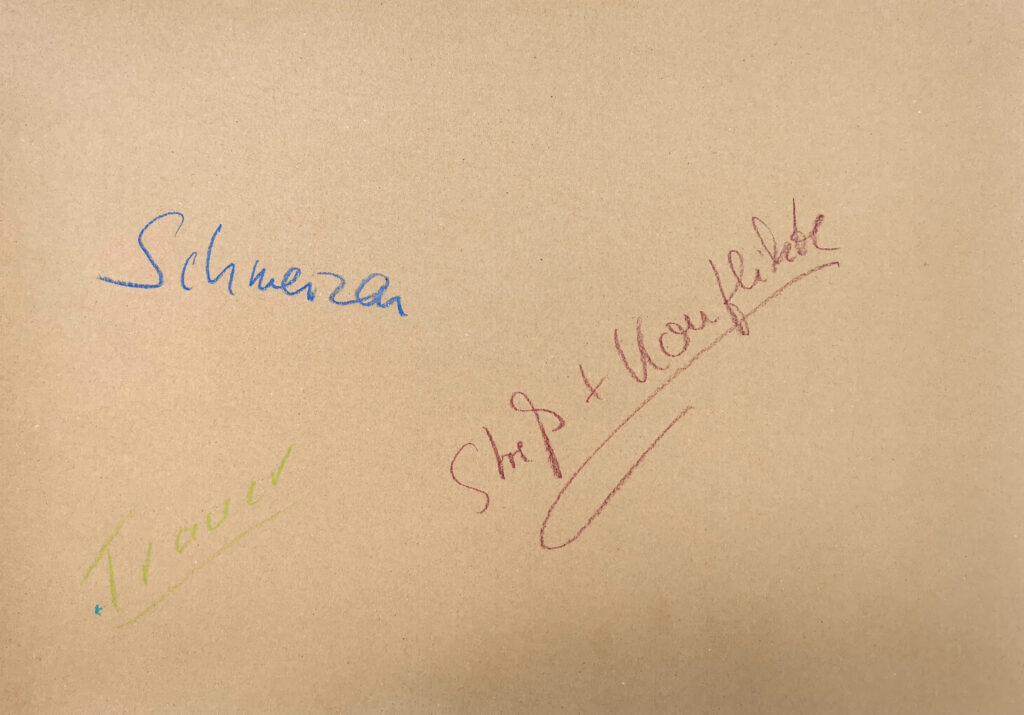 Schmerzen
Streß + Konflikte
Trauer